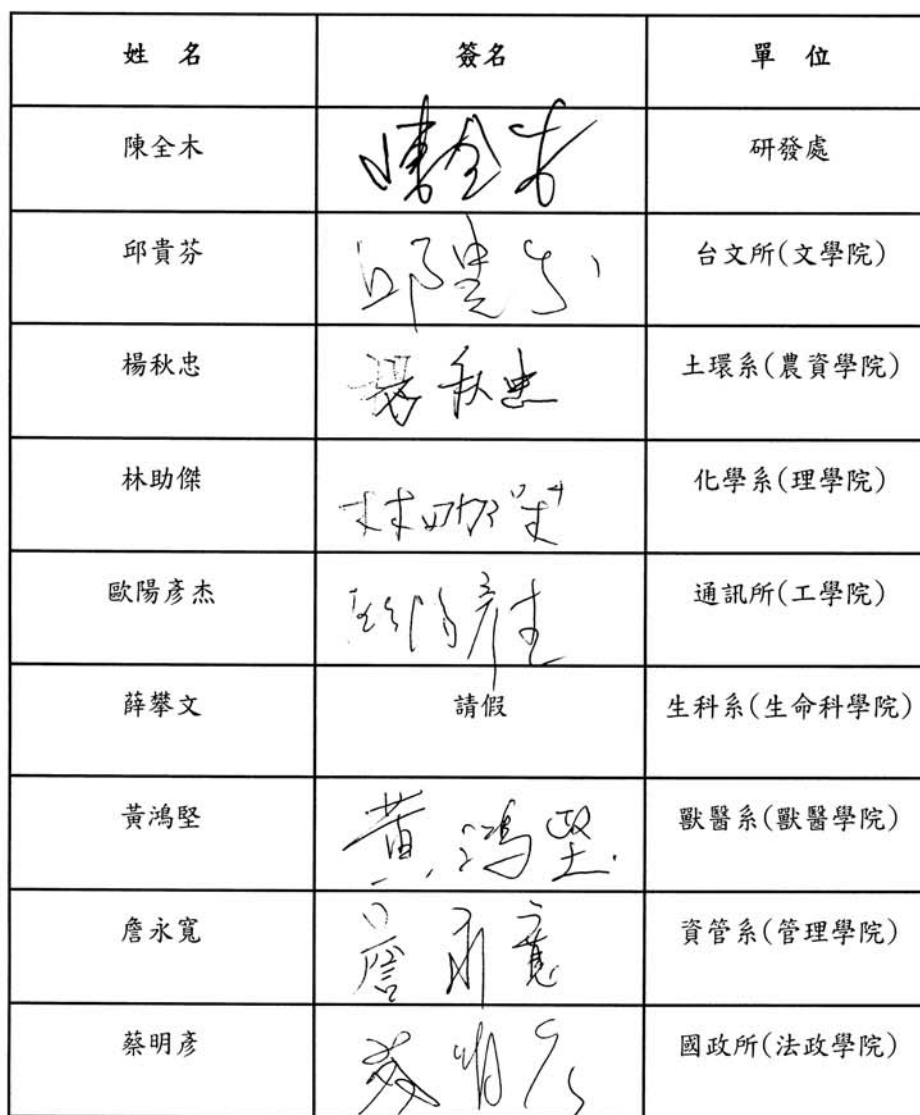 姓 名 簽名 單 位
陳全木 陳全木 研發處
邱貴芬 邱貴芬 台文所(文學院)
楊秋忠 楊秋忠 土環系(農資學院)
林助傑 林助傑 化學系(理學院)
歐陽彥杰 歐陽彥杰 通訊所(工學院)
薛攀文 請假 生科系(生命科學院)
黃鴻堅 黃鴻堅 獸醫系(獸醫學院)
詹永寬 詹永寬 資管系(管理學院)
蔡明彥 蔡明彥 國政所(法政學院)